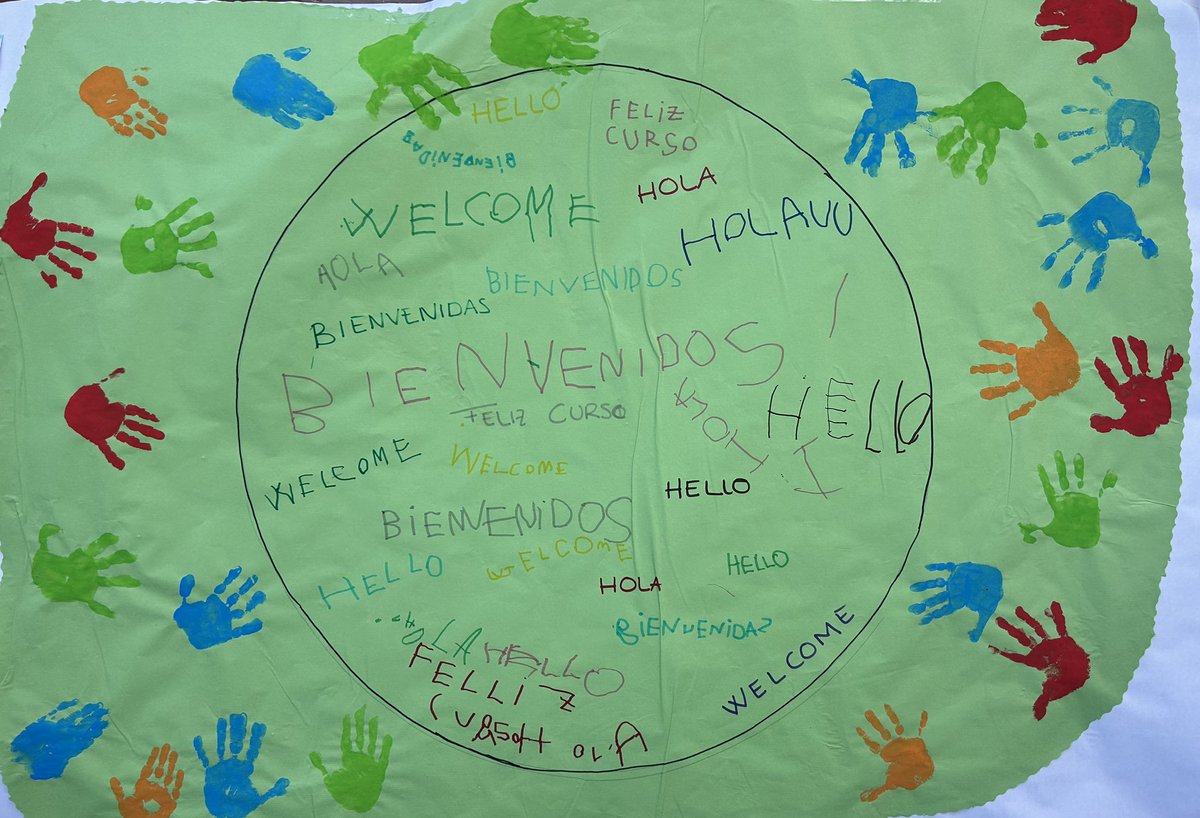 HELLO
FELIZ
CURSO
BIENBENIDAB
HOLA
WELCOME
HOLAVU
AOLA
BIENVENIDOS
BIENVENIDAS
BIENVENIDOS
FELIZ CURSO
HELLO
WELCOME
WELCOME
HELLO
BIENVENIDOS
WELCOME
HELLO
HELLO
HOLA
BIENVENIDAS
WELCOME
HOLA
HELLO
FELLIZ